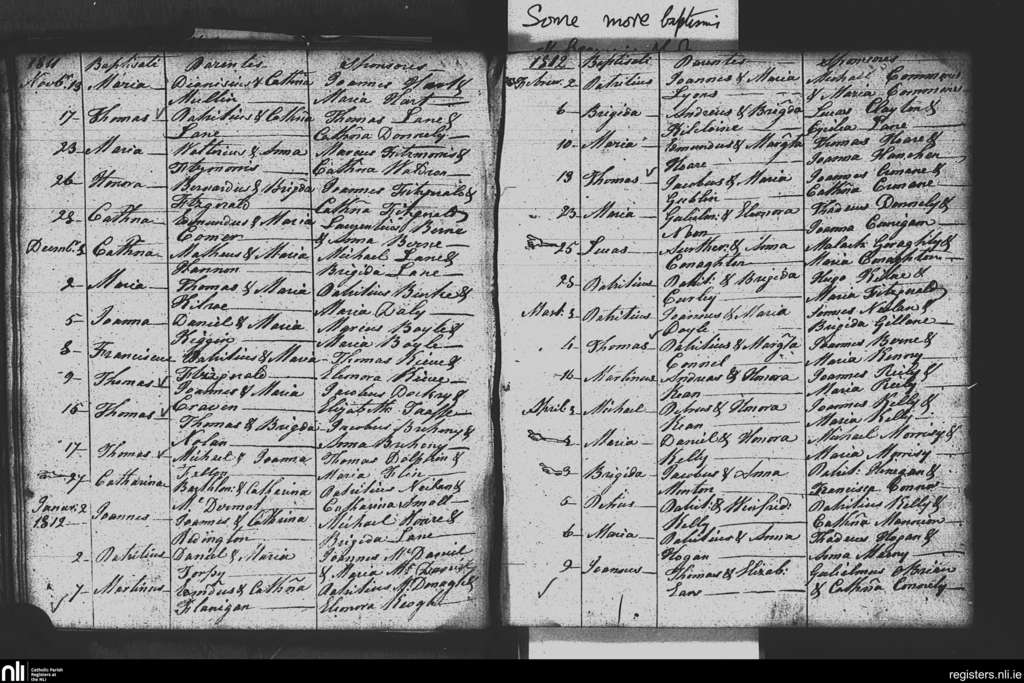 Some more baptisms
1811 Baptisati Parentes Sponsores
Novbr. 13 Maria Dionisius & Cathna Joannes Hart &
Mullin Maria Hart
17 Thomas Patritius & Cathna Thomas Lane &
Lane Cathna Donnely
23 Maria Walterius & Anna Marcus Fitzmorris &
Cathna Waldron
26 Honora Bernardus & Brigda Joannes Fitzgerald &
Fitzgerald Cathna Fitzgerald
28 Cathna Edmundus & Maria Laurentius Berne
Comer & Anna Berne
Decmbr. Cathna Matheus & Maria Michael Lane &
Hannon Brigida Lane
2 Maria Thomas & Maria Patritius Burke &
Kilroe Maria Daly
5 Joanna Daniel & Maria Marcus Boyle &
Higgin Maria Boyle
8 Franciscus Patritius & Maria Thomas
Fitzgerald Elenora
9 Thomas Joannes & Maria Jacobus Dockry &
Craven Elizabth Taaffe
15 Thomas Thomas & Brigda Jacobus Bruhony &
Nolan Anna Bruhony
17 Thomas Michael & Joanna Thomas Dolphin &
Maria Flin
27 Catharina Barthlom: & Catharina Patritius Neilan &
McDermot Catharina Small
Januar. 2 Joannes Joannes & Cathrina Michael Hoare &
1812 Ridington Brigida Lane
2 Patritius Daniel & Maria Joannes McDaniel
Torpy & Maria
7 Martinus Emdus & Cathna Patritius McDonagh &
Flanigan Elenora Keogh
1812 Baptisati Parentes Sponsores
Februar. 2 Patritius Joannes & Maria Michael Commons
Lyons & Maria Commons
6 Brigida Andreas & Brigda Lucas Clayton &
Kilcloine Cycelia Lane
10 Maria Edmundus & Margta Thomas Hoare &
Hoare Joanna Hanahan
13 Thomas Jacobus & Maria Joannes Cunane &
Gublin Cathna Cunane
23 Maria Gulielm: & Elenora Thadeus Donnely &
Noon Joanna Cunigan
25 Lucas & Anna Malach: Geraghty &
Conaghton Maria Conaghton
28 Patritius Patrit: & Brigida Hugo Kilroe &
Curley Maria Fitzgerald
Mart: 3 Patritius Joannes & Maria Jacobus Neelan &
Doyle Brigida Gillane
4 Thomas Patritius & Margta Thomas Berne &
Connel Maria Kenny
16 Martinus Andreas & Honora Joannes Reily &
Kean Maria Reily
April: 2 Michael Petrus & Honora Joannes Kelly &
Kean Maria Kelly
2 Maria Daniel & Honora Michael Morrisy &
Kelly Maria Morrisy
3 Brigida Jacobus & Anna Patrit: Finegan &
Morton Francisca Connor
5 Petrus Patrit: & Winifrid Patritius Kelly &
Kelly Cathna
6 Maria Patritius & Anna Thadeus Hogan &
Hogan Anna
9 Joannes Thomas & Elizab: Gulielmus OBrien
Lane & Cathna Connely
nli
Catholic Parish
Registers at
the NLI
registers.nli.ie